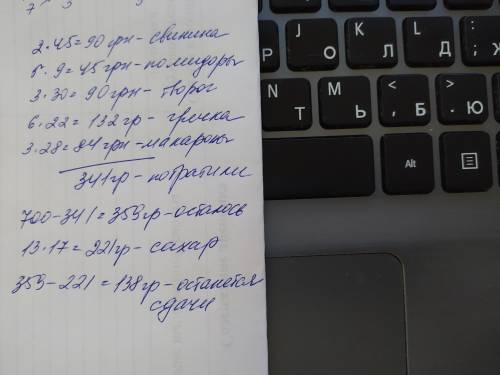 7 3
2·45=90грн-свинина
5·9=45грн-помидоры
3·30=90грн-творог
6·22=132гр-гречка
3·28=84грн-макароны
341гр-потратили
700-341=359гр-осталось
13·17=221гр-сахар
359-221=138гр-останется
сдачи
J K L :
О Л Д ;
N M < >
Т Ь , Б . Ю
Alt